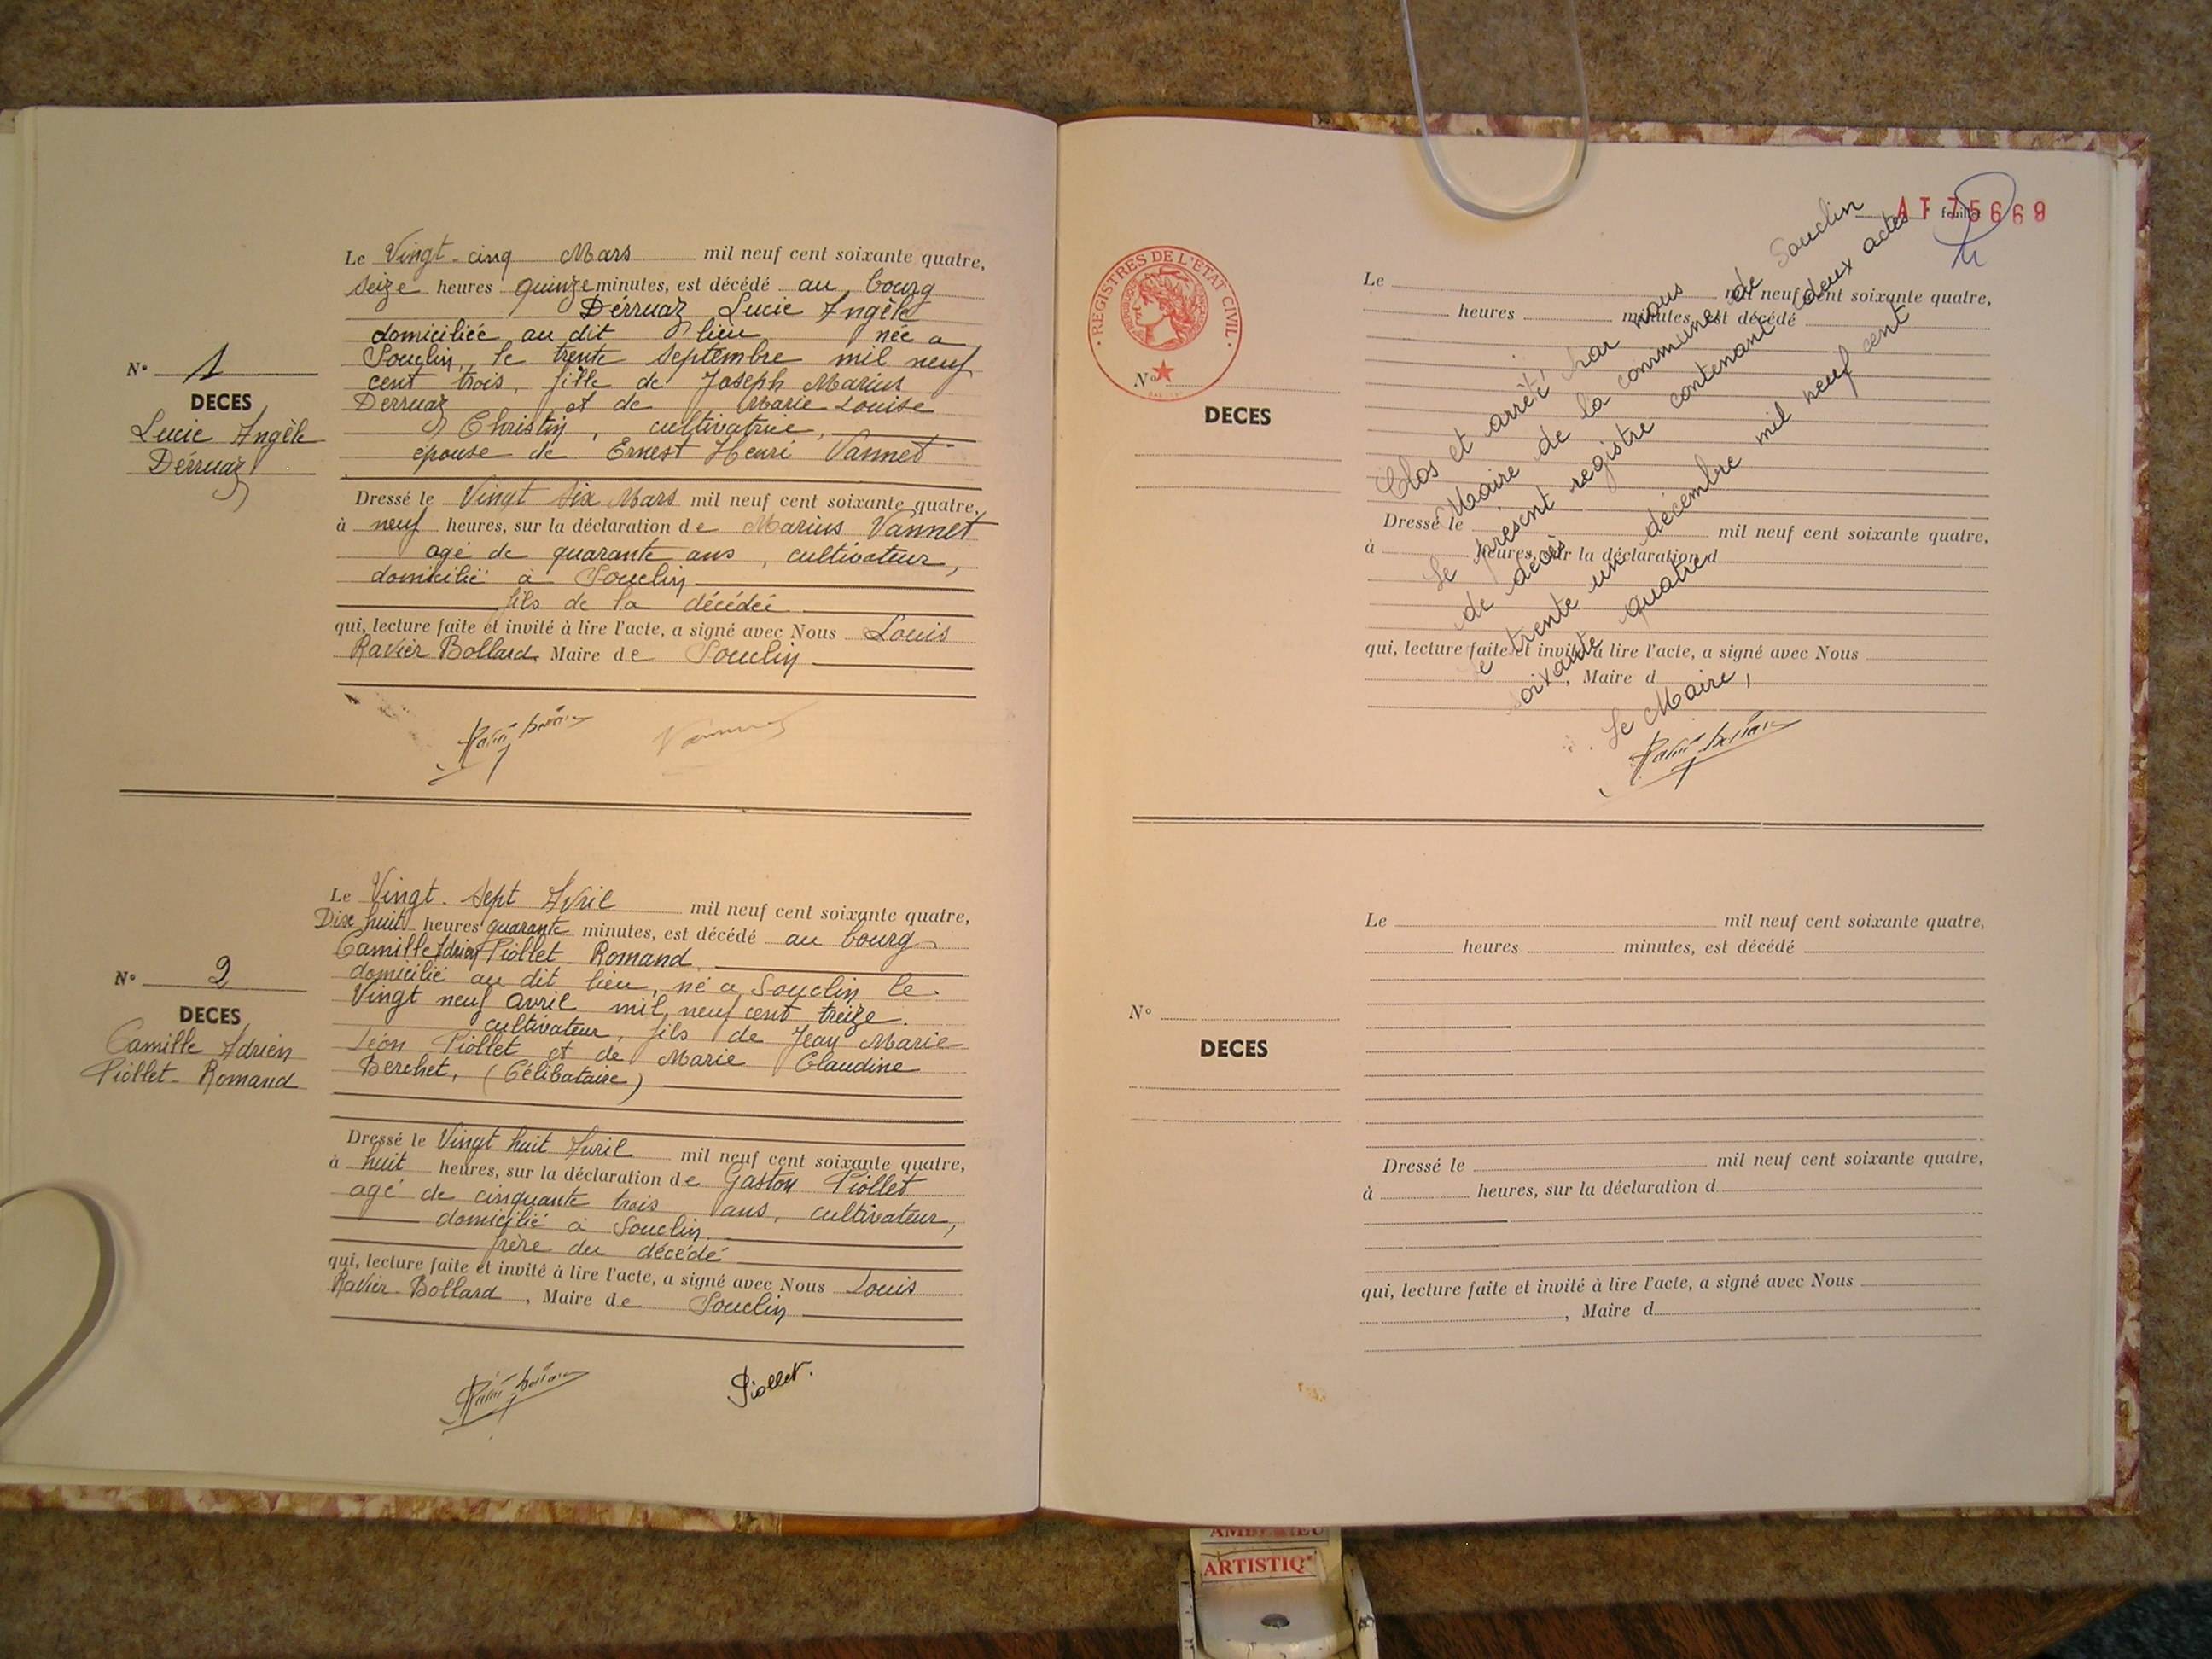 Le Vingt-cinq Mars mil neuf cent soixante quatre,
seize heures quinze minutes, est décédé au bourg
Dérruaz Lucie Angèle
domiciliée au dit lieu née a
Souclin, le trente septembre mil neuf
cent trois, fille de Joseph Marius
Derruaz et de Marie Louise
Christin, cultivatrice,
épouse de Ernest Henri Vannet
N° 1
DECES
Lucie Angèle
Dérruaz
Dressé le Vingt six Mars mil neuf cent soixante quatre,
à neuf heures, sur la déclaration de Marius Vannet
agé de quarante ans, cultivateur,
domicilié à Souclin
fils de la décédée
qui, lecture faite et invité à lire l'acte, a signé avec Nous Louis
Ravier Bollard, Maire de Souclin
Le Vingt-sept Avril mil neuf cent soixante quatre,
Dix huit heures quarante minutes, est décédé au bourg
Camille Adrien Piollet Romand
domicilié au dit lieu, né a Souclin le
Vingt neuf avril mil neuf cent treize.
cultivateur, fils de Jean Marie
Léon Piollet et de Marie Claudine
Berchet, (Célibataire)
N° 2
DECES
Camille Adrien
Piollet-Romand
Dressé le Vingt huit Avril mil neuf cent soixante quatre,
à huit heures, sur la déclaration de Gaston Piollet
agé de cinquante trois ans, cultivateur,
domicilié à Souclin
frère du décédé
qui, lecture faite et invité à lire l'acte, a signé avec Nous Louis
Ravier-Bollard, Maire de Souclin
Piollet.
AT 75669
feuillet
REGISTRES DE L'ETAT CIVIL
Le mil neuf cent soixante quatre,
heures minutes, est décédé
N°
DECES
Dressé le mil neuf cent soixante quatre,
à heures, sur la déclaration d
qui, lecture faite et invité à lire l'acte, a signé avec Nous
, Maire d
Clos et arrêté par nous
Maire de la commune de Souclin
le présent registre contenant deux actes
de décès
le trente un décembre mil neuf cent
soixante quatre
Le Maire,
Le mil neuf cent soixante quatre,
heures minutes, est décédé
N°
DECES
Dressé le mil neuf cent soixante quatre,
à heures, sur la déclaration d
qui, lecture faite et invité à lire l'acte, a signé avec Nous
, Maire d
ARTISTIQ